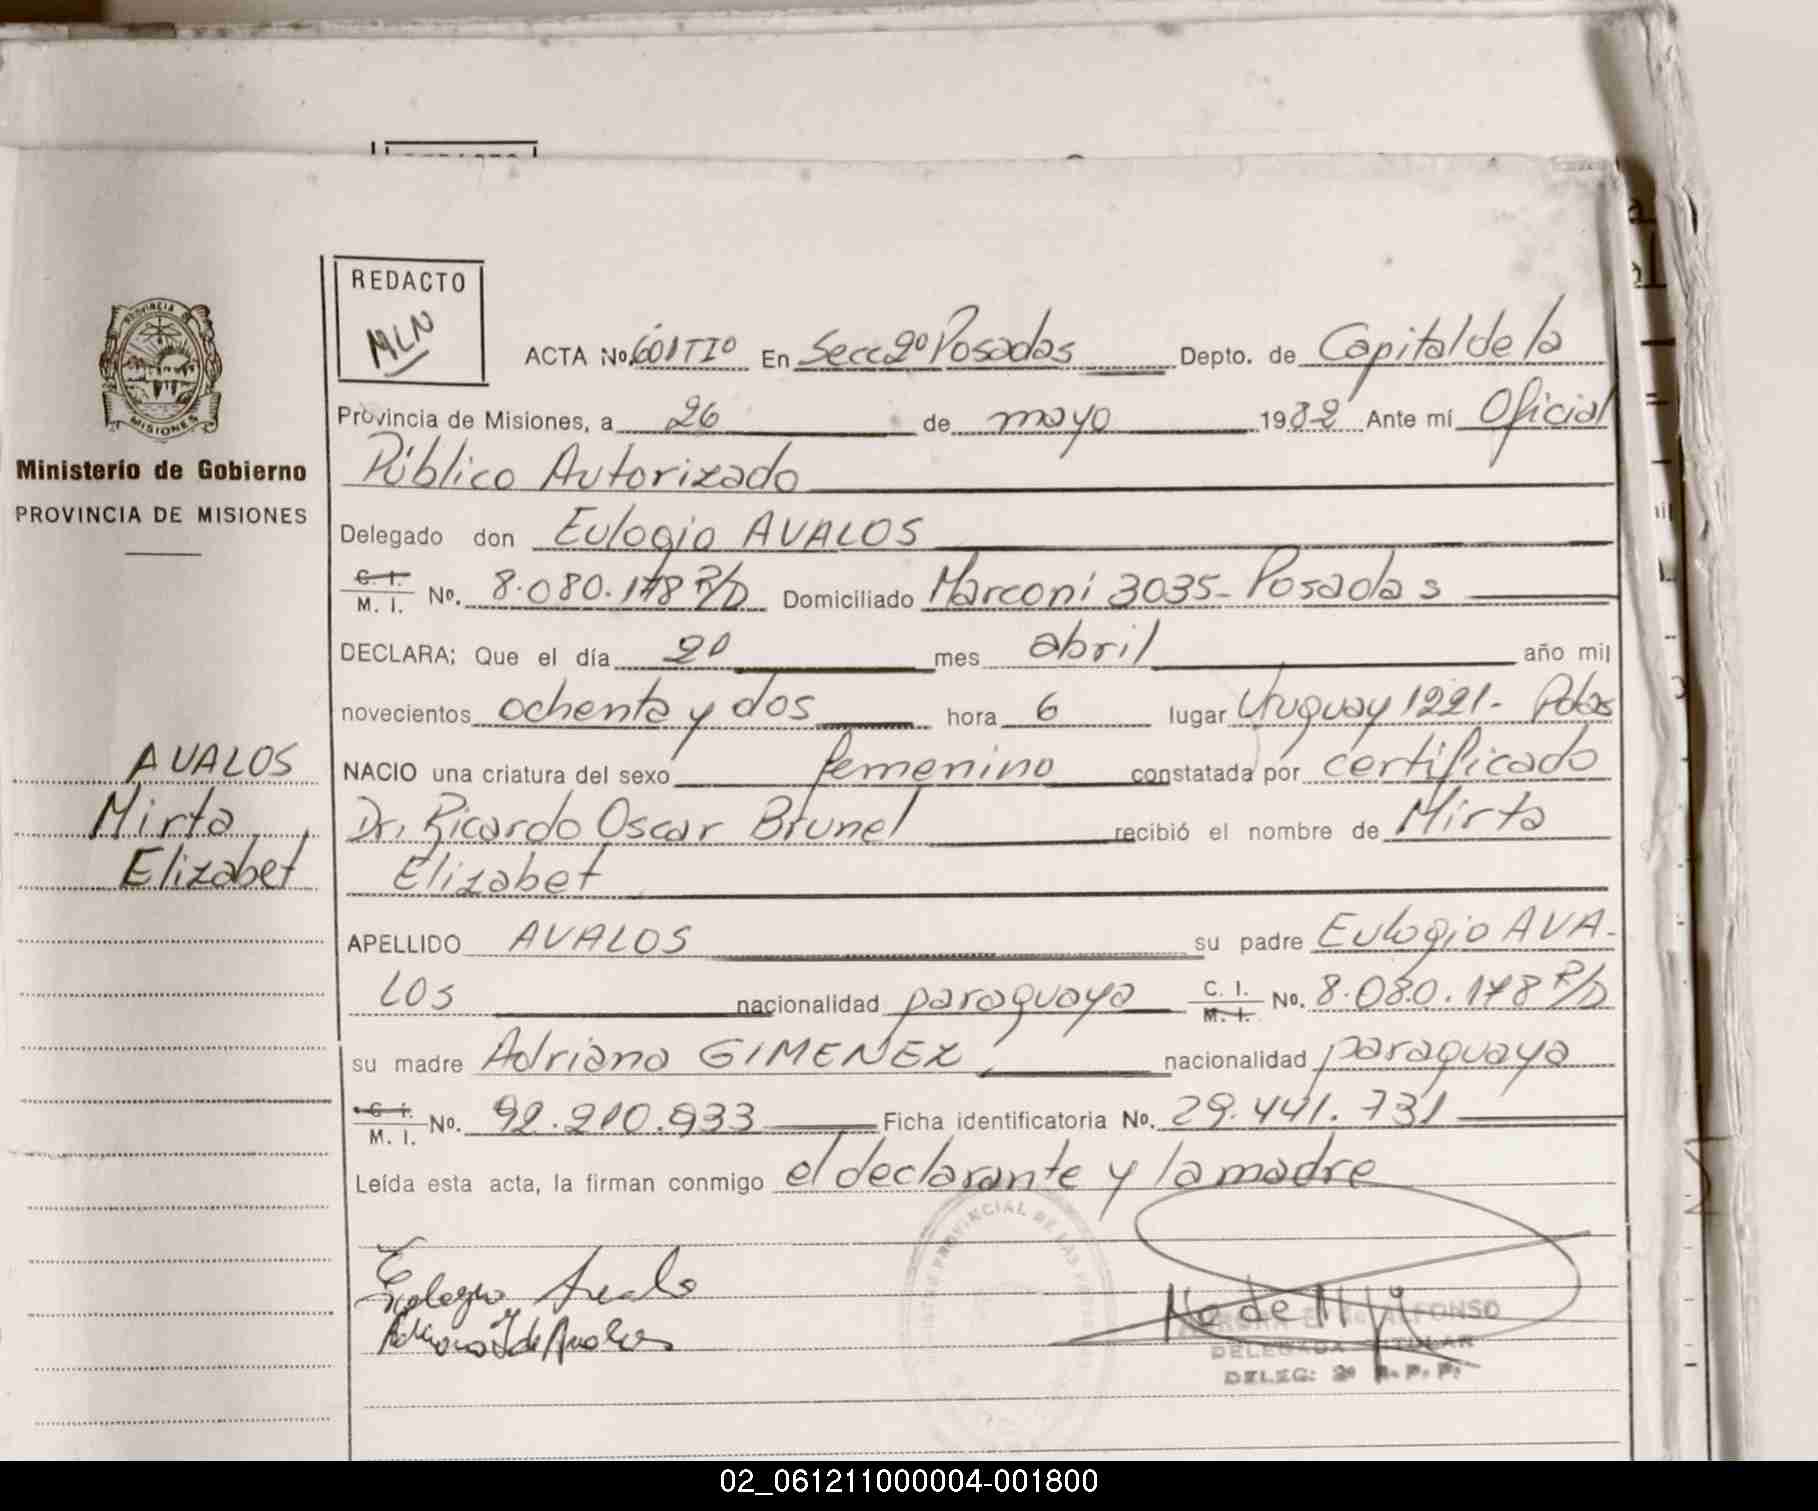 REDACTO
MLN
ACTA No. 601TIº En Secc 2º Posadas Depto. de Capital de la
Provincia de Misiones, a 26 de mayo 1982 Ante mí Oficial
Público Autorizado
Delegado don Eulogio AVALOS
C. I. M. I. No. 8.080.178 P/D Domiciliado Marconi 3035- Posadas
DECLARA: Que el día 20 mes abril año mil
novecientos ochenta y dos hora 6 lugar Uruguay 1221- Pdas
NACIO una criatura del sexo femenino constatada por certificado
Dr. Ricardo Oscar Brunel recibió el nombre de Mirta
Elizabet
APELLIDO AVALOS su padre Eulogio AVA-
LOS nacionalidad paraguaya C. I. M. I. No. 8.080.178 P/D
su madre Adriana GIMENEZ, nacionalidad paraguaya
C. I. M. I. No. 92.210.933 Ficha identificatoria No. 29.441.731
Leída esta acta, la firman conmigo el declarante y la madre
Eulogio Avalo
Adriana G de Avalos
ALFONSO
DELEGADA TITULAR
DELEG: 2º R. P. P.
PROVINCIA
MISIONES
Ministerio de Gobierno
PROVINCIA DE MISIONES
AVALOS
Mirta
Elizabet
PROVINCIAL DE LAS
02_061211000004-001800